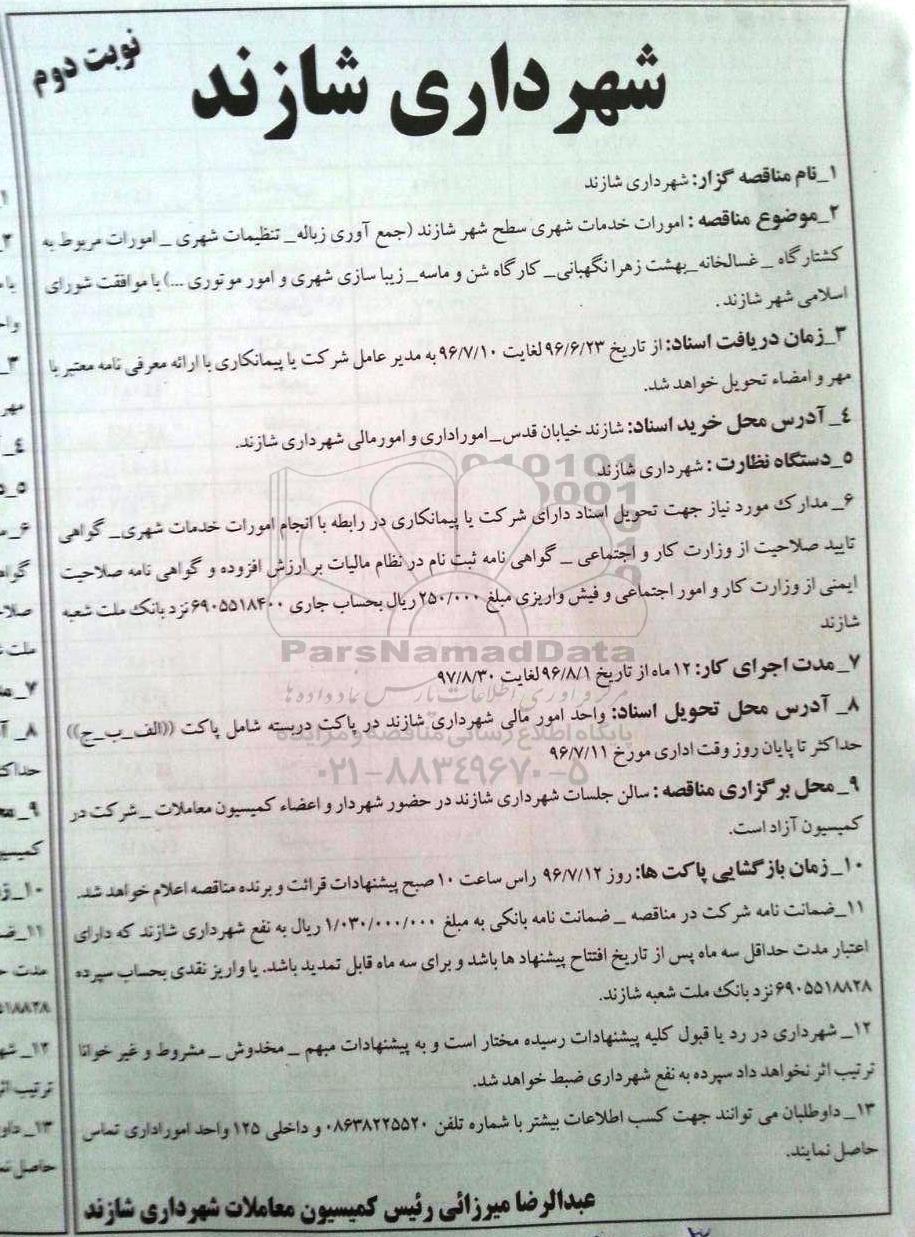 نوبت دوم
شهرداری شازند
۱_نام مناقصه گزار: شهرداری شازند
۲_موضوع مناقصه : امورات خدمات شهری سطح شهر شازند (جمع آوری زباله_ تنظیمات شهری _ امورات مربوط به
کشتارگاه _ غسالخانه_بهشت زهرا نگهبانی_ کارگاه شن و ماسه_ زیبا سازی شهری و امور موتوری ...) با موافقت شورای
اسلامی شهر شازند .
۳_زمان دریافت اسناد: از تاریخ ۹۶/۶/۲۳ لغایت ۹۶/۷/۱۰ به مدیر عامل شرکت یا پیمانکاری با ارائه معرفی نامه معتبر با
مهر و امضاء تحویل خواهد شد.
۴_ آدرس محل خرید اسناد: شازند خیابان قدس_امور اداری و امورمالی شهرداری شازند.
۵_دستگاه نظارت : شهرداری شازند
۶_ مدارک مورد نیاز جهت تحویل اسناد دارای شرکت یا پیمانکاری در رابطه با انجام امورات خدمات شهری_ گواهی
تایید صلاحیت از وزارت کار و اجتماعی _ گواهی نامه ثبت نام در نظام مالیات بر ارزش افزوده و گواهی نامه صلاحیت
ایمنی از وزارت کار و امور اجتماعی و فیش واریزی مبلغ ۲۵۰/۰۰۰ ریال بحساب جاری ۶۹۰۵۵۱۸۴۰۰ نزد بانک ملت شعبه
شازند
ParsNamadData
۷_مدت اجرای کار: ۱۲ ماه از تاریخ ۹۶/۸/۱ لغایت ۹۷/۸/۳۰
۸_ آدرس محل تحویل اسناد: واحد امور مالی شهرداری شازند در پاکت دربسته شامل پاکت ((الف_ب_ج))
پایگاه اطلاع رسانی مناقصه و مزایده
حداکثر تا پایان روز وقت اداری مورخ ۹۶/۷/۱۱
۰۲۱-۸۸۳۴۹۶۷۰-۵
۹_محل برگزاری مناقصه : سالن جلسات شهرداری شازند در حضور شهردار و اعضاء کمیسیون معاملات _شرکت در
کمیسیون آزاد است.
۱۰_زمان بازگشایی پاکت ها: روز ۹۶/۷/۱۲ راس ساعت ۱۰ صبح پیشنهادات قرائت و برنده مناقصه اعلام خواهد شد.
۱۱_ضمانت نامه شرکت در مناقصه _ ضمانت نامه بانکی به مبلغ ۱/۰۳۰/۰۰۰/۰۰۰ ریال به نفع شهرداری شازند که دارای
اعتبار مدت حداقل سه ماه پس از تاریخ افتتاح پیشنهاد ها باشد و برای سه ماه قابل تمدید باشد. یا واریز نقدی بحساب سپرده
۶۹۰۵۵۱۸۸۲۸ نزد بانک ملت شعبه شازند.
۱۲_ شهرداری در رد یا قبول کلیه پیشنهادات رسیده مختار است و به پیشنهادات مبهم _ مخدوش _ مشروط و غیر خوانا
ترتیب اثر نخواهد داد سپرده به نفع شهرداری ضبط خواهد شد.
۱۳_ داوطلبان می توانند جهت کسب اطلاعات بیشتر با شماره تلفن ۰۸۶۳۸۲۲۵۵۲۰ و داخلی ۱۲۵ واحد امور اداری تماس
حاصل نمایند.
عبدالرضا میرزائی رئیس کمیسیون معاملات شهرداری شازند